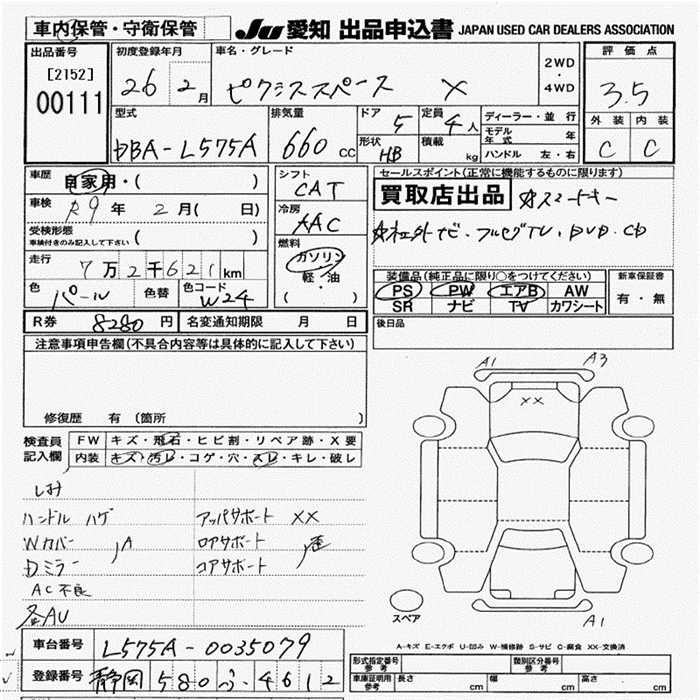 車内保管・守衛保管
JU 愛知 出品申込書 JAPAN USED CAR DEALERS ASSOCIATION
出品番号
[2152]
00111
初度登録年月
26 2月
車名・グレード
ピクシススペース X
2WD・4WD
評価点
3.5
型式
DBA-L575A
排気量
660cc
ドア 5
定員 4人
形状 HB
積載 kg
ディーラー・並行
モデル年式 年
ハンドル 左・右
外装 内装
C C
車歴 自家用・( )
車検 R9年 2月( 日)
受検形態
車検付きのみ記入して下さい ( )
走行 7万2千621km
色 パール 色替 色コード W24
シフト
CAT
冷房
AAC
燃料
ガソリン
軽・油
( )
セールスポイント(正常に機能するものに限ります)
買取店出品 スマートキー
社外ナビ・フルセグTV,DVD.CD
装備品(純正品に限り○をつけてください)
PS PW エアB AW
SR ナビ TV カワシート
新車保証書
有・無
R券 8280円 名変通知期限 月 日
後日品
注意事項申告欄(不具合内容等は具体的に記入して下さい)
修復歴 有 (箇所 )
検査員記入欄
FW キズ・飛石・ヒビ割・リペア跡・X要
内装 キズ・汚レ・コゲ・穴・スレ・キレ・破レ
シミ
ハンドル ハゲ アッパサポート XX
Wカバー A ロアサポート
Dミラー コアサポート
AC不良
各AU
A1 A3
XX
スペア
A1
車台番号 L575A-0035079
登録番号 静岡 580 ふ 4612
A-キズ E-エクボ U-凹み W-補修跡 S-サビ C-腐食 XX-交換済
形式指定番号 参考 類別区分番号 参考
車庫証明用 参考 長さ cm 幅 cm 高さ cm